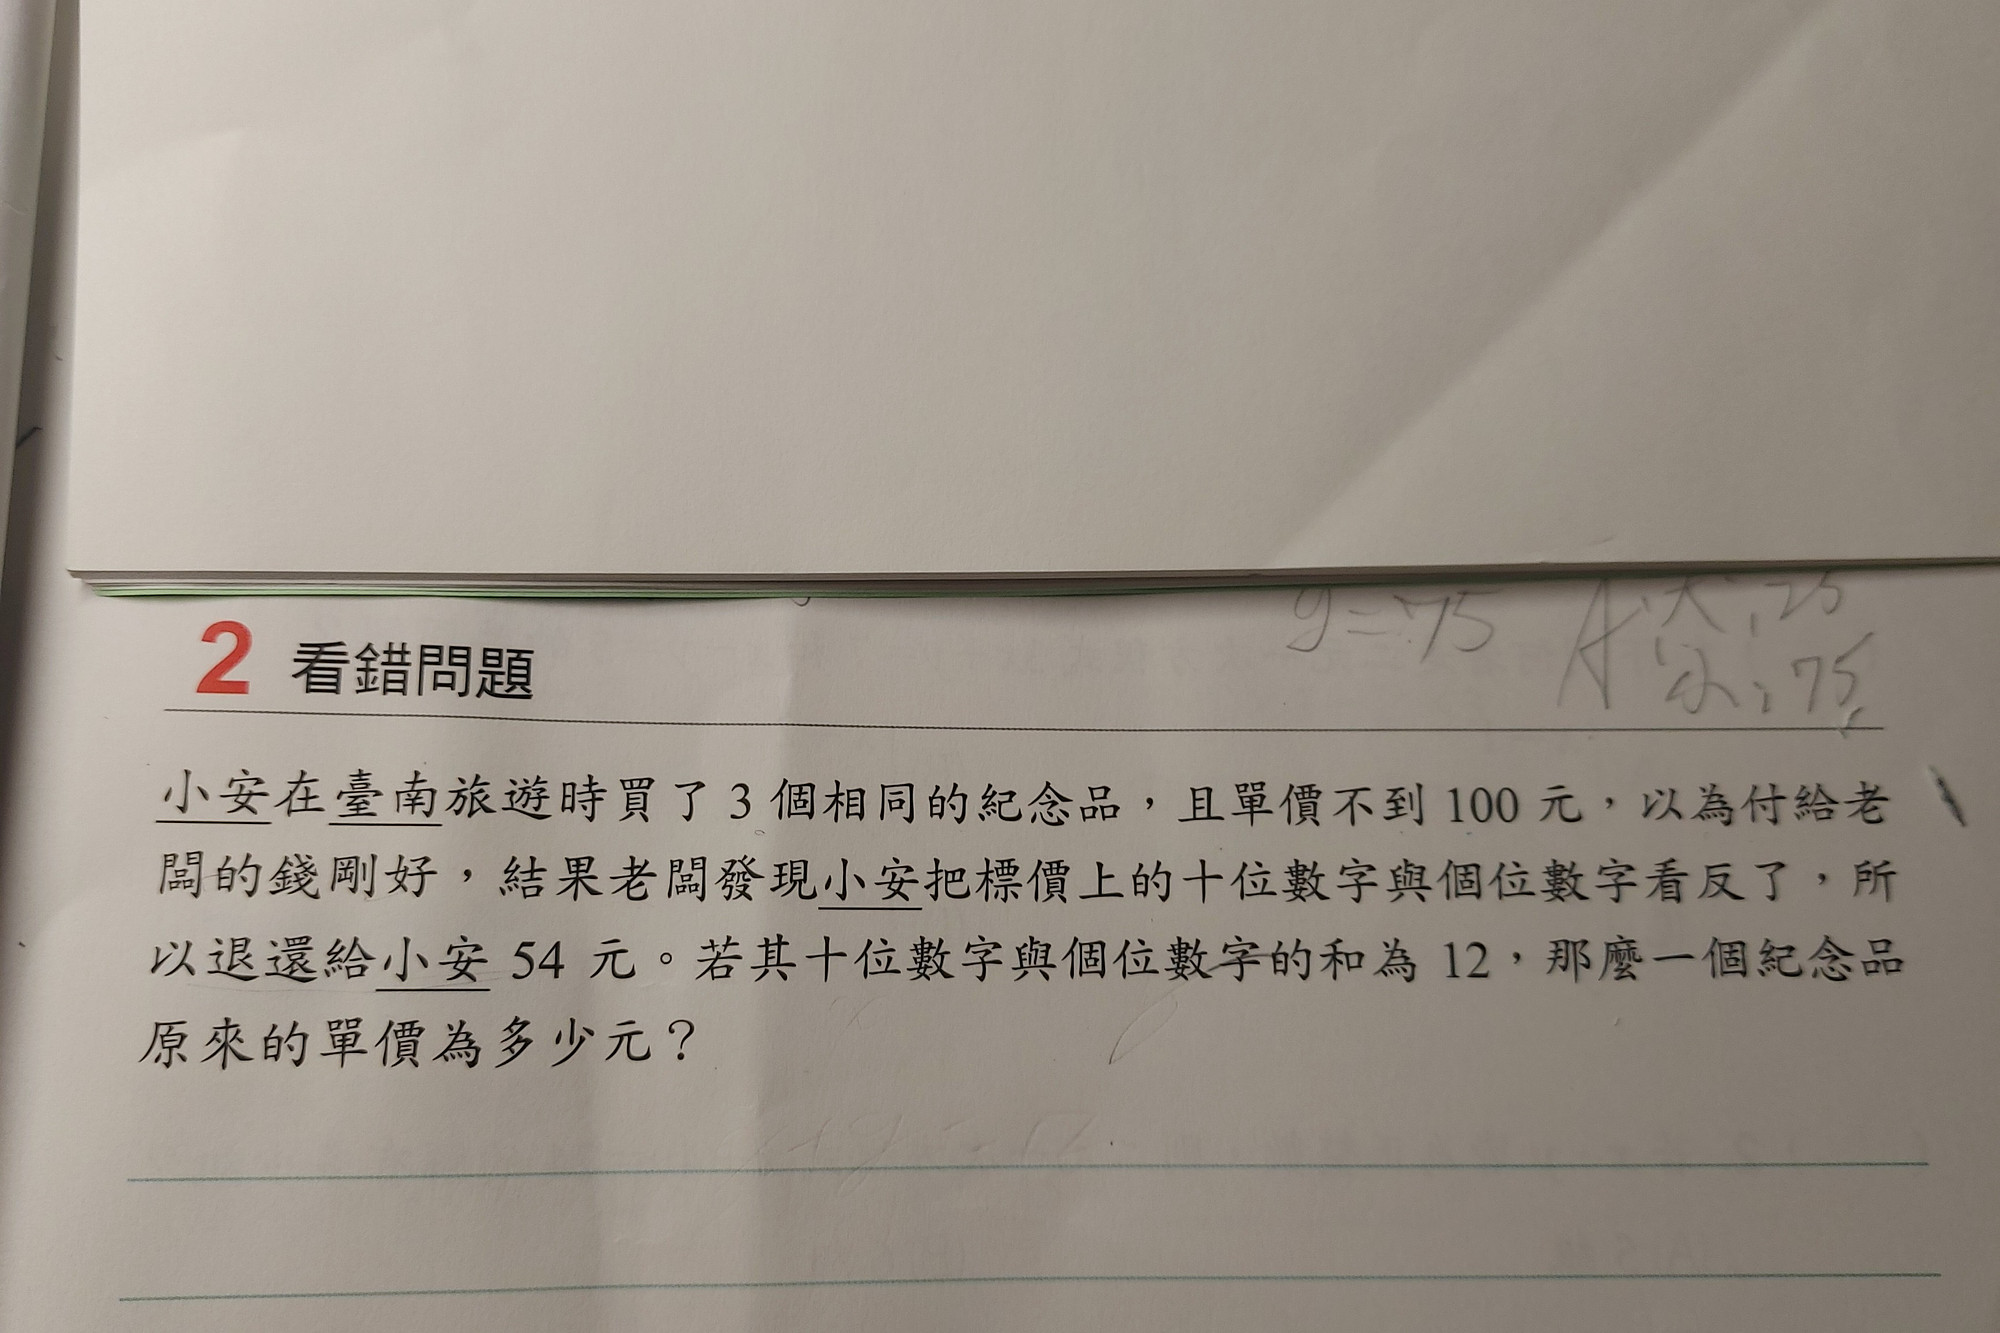 y=75
大:25
2 看錯問題
小:75
小安在臺南旅遊時買了 3 個相同的紀念品，且單價不到 100 元，以為付給老
闆的錢剛好，結果老闆發現小安把標價上的十位數字與個位數字看反了，所
以退還給小安 54 元。若其十位數字與個位數字的和為 12，那麼一個紀念品
原來的單價為多少元？